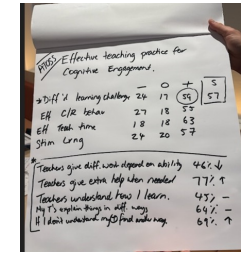 Effective teaching practice for
Cognitive Engagement.
- O + S
* Diff'd learning challenge 24 17 59 57
Eff C/R behav 27 18 55
Eff Teach time 18 18 63
Stim Lrng 24 20 57
Teachers give diff. work depend on ability 46% ↓
Teachers give extra help when needed 77% ↑
Teachers understand how I learn. 45% -
My T's explain things in diff. ways 64% -
If I don't understand my T's find another way. 69% ↑